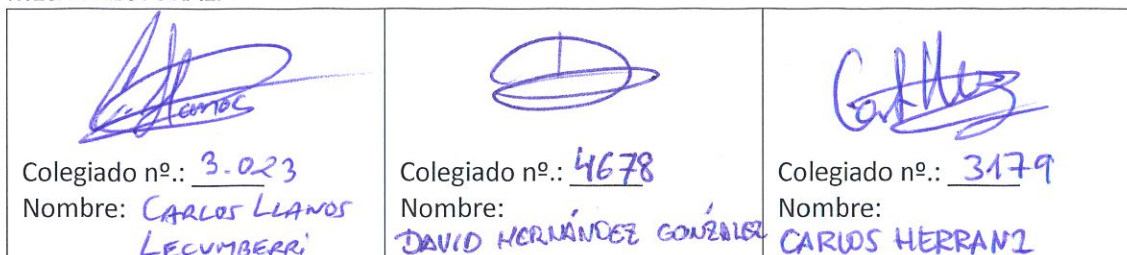 Colegiado nº.: 3.023
Nombre: CARLOS LLANOS
LECUMBERRI
Colegiado nº.: 4678
Nombre:
DAVID HERNÁNDEZ GONZÁLEZ
Colegiado nº.: 3179
Nombre:
CARLOS HERRANZ